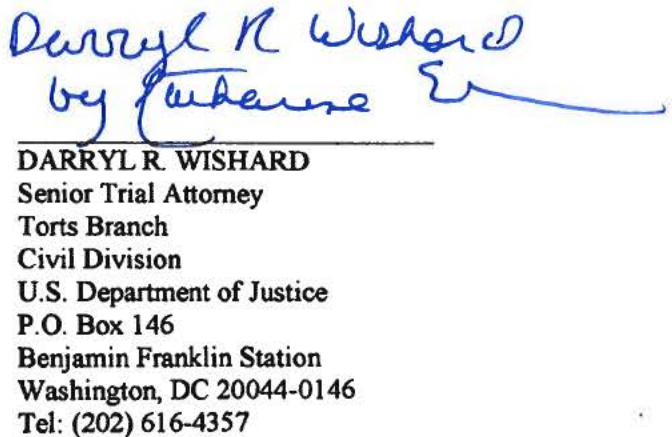 Darryl R Wishard
by Catharine E
DARRYL R. WISHARD
Senior Trial Attorney
Torts Branch
Civil Division
U.S. Department of Justice
P.O. Box 146
Benjamin Franklin Station
Washington, DC 20044-0146
Tel: (202) 616-4357